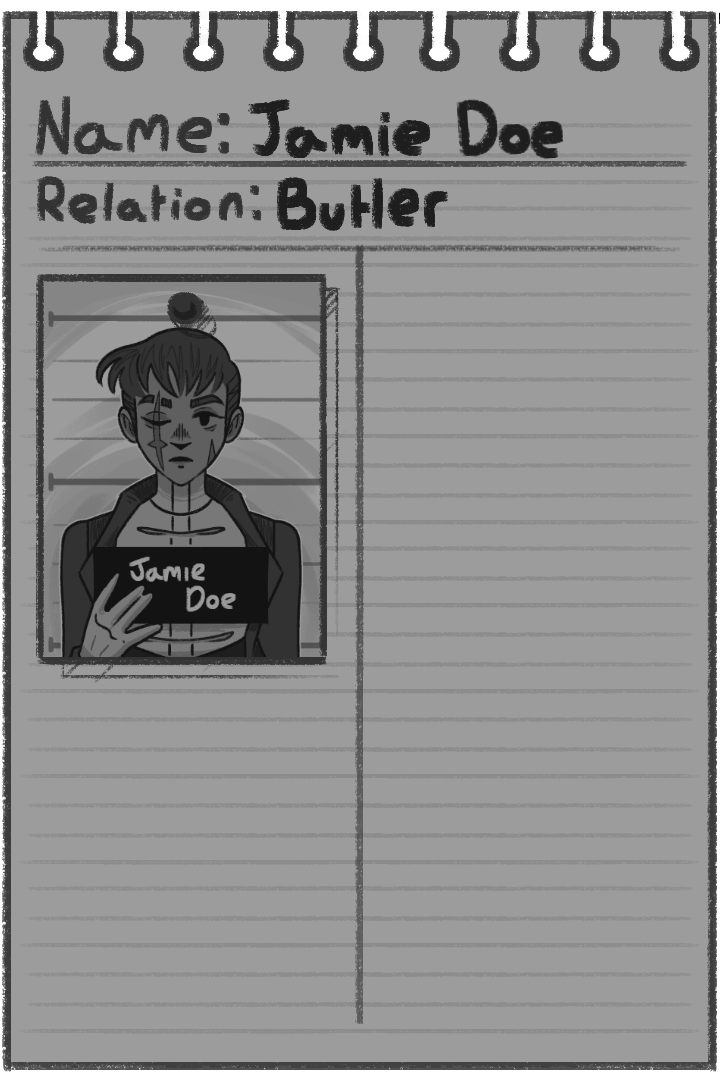 Name: Jamie Doe
Relation: Butler
Jamie
Doe